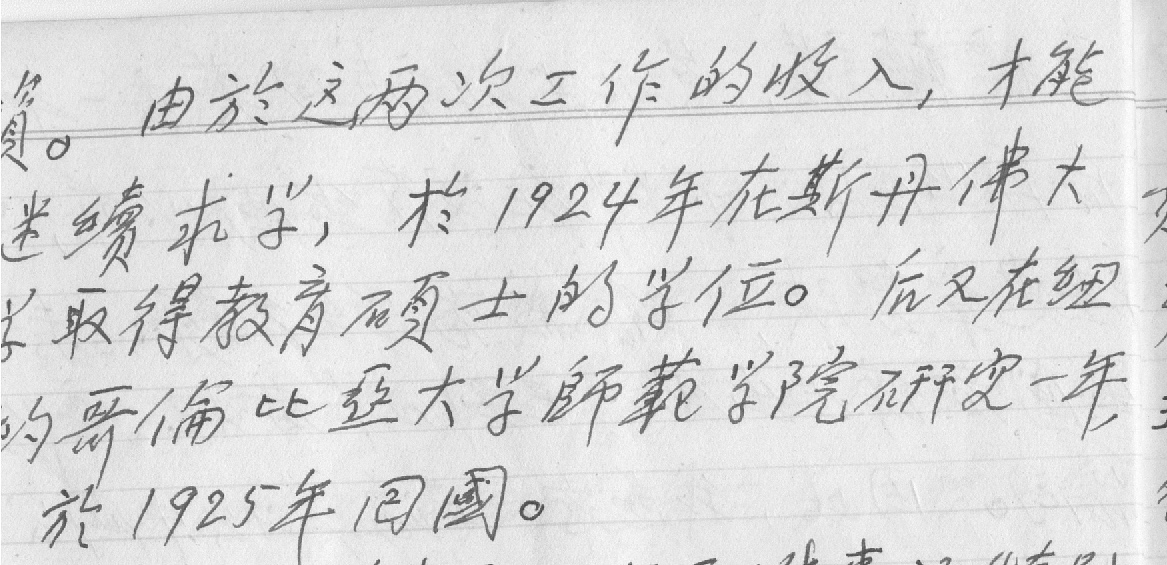 資。由於这两次工作的收入,才能
継續求学,於1924年在斯丹佛大
学取得教育碩士的学位。后又在纽
的哥倫比亞大学師範学院研究一年,
於1925年回國。